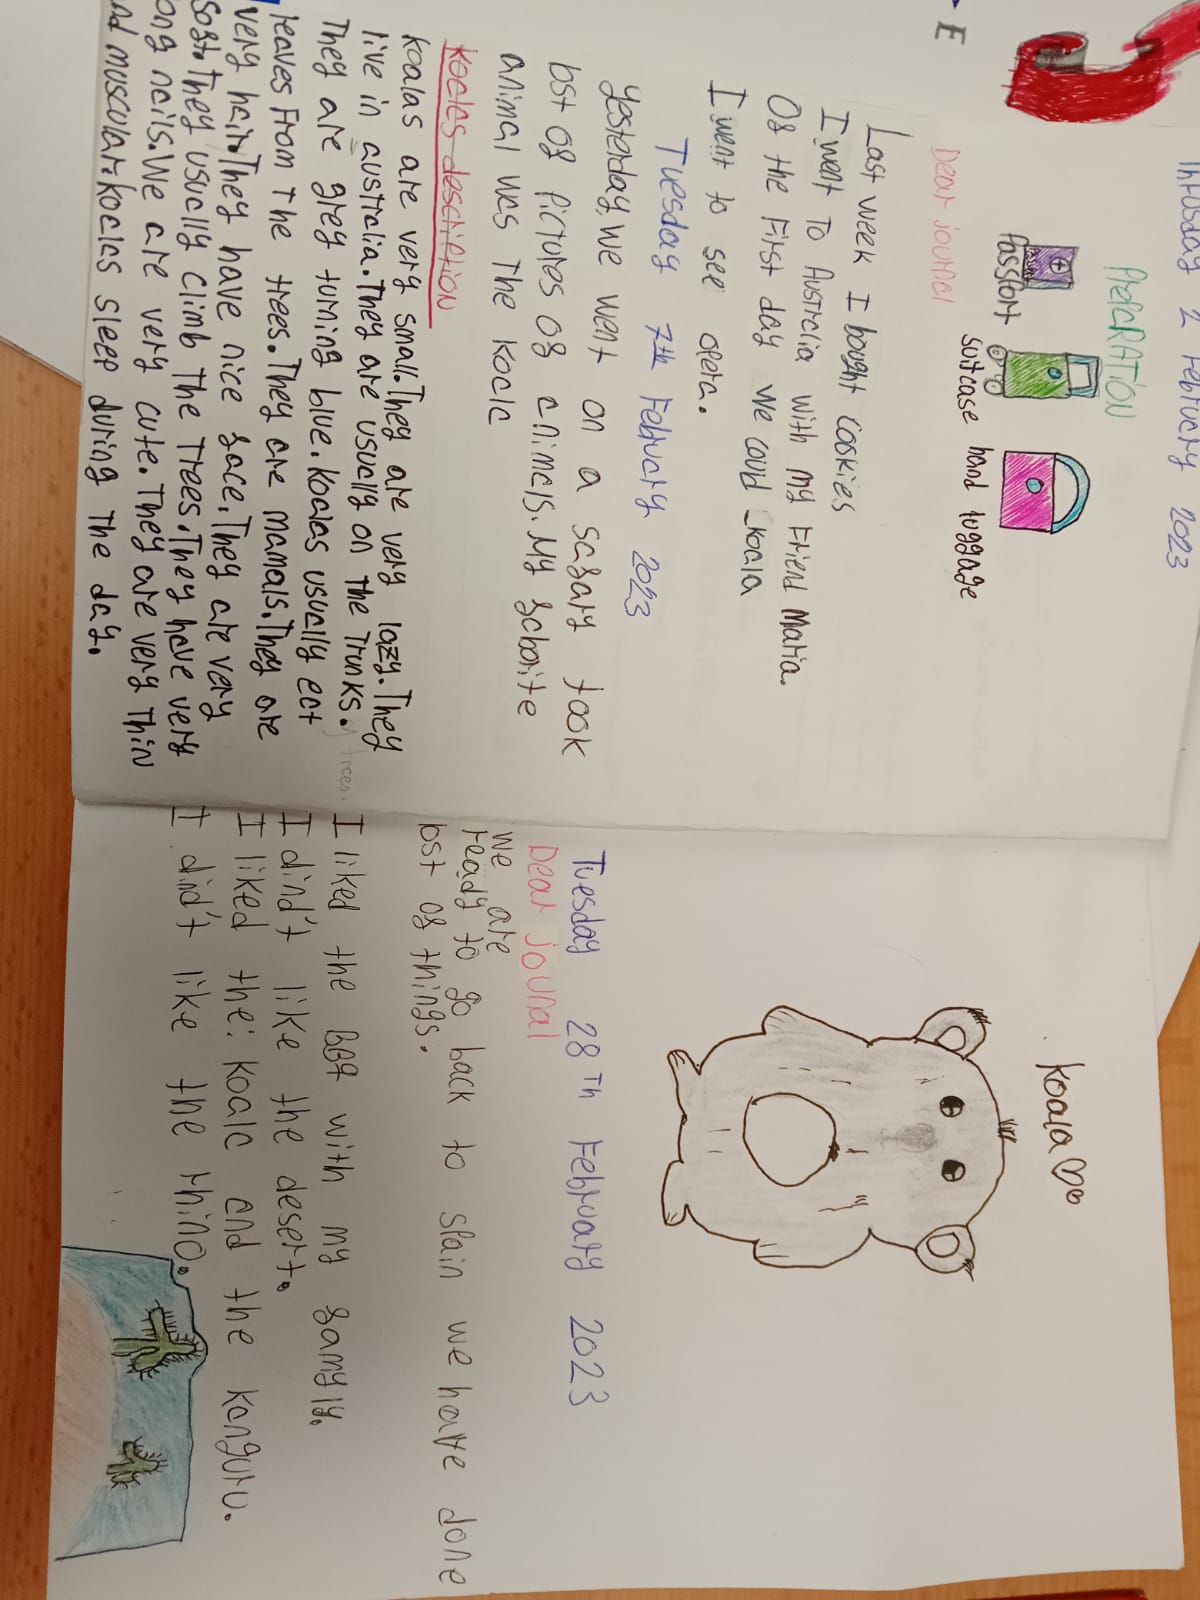 Thrusday 2 February 2023
E
PrepARATION
Passport
suitcase
hand luggage
Dear journel
Last week I bought cookies
I went To Australia with my Friend Maria.
Of the First day we could koala
I went to see opera.
Tuesday 7th February 2023
yesterday, we went on a safary took
lost of pictures of animals. My faborite
animal was the koala
koalas description
koalas are very small. They are very lazy. They
live in australia. They are usually on the Trunks.
They are grey turning blue. koalas usually eat
leaves From the trees. They are mamals. They are
very hair. They have nice face. They are very
soft. They usually climb the Trees. They have very
ong nails. We are very cute. They are very thin
nd muscular. koalas sleep during the day.
koala
Tuesday 28Th February 2023
Dear jounal
we are
ready to go back to spain we have done
lost of things.
I liked the with my family.
I dind't like the desert.
I liked the: koala and the kanguru.
I didn't like the rhino.